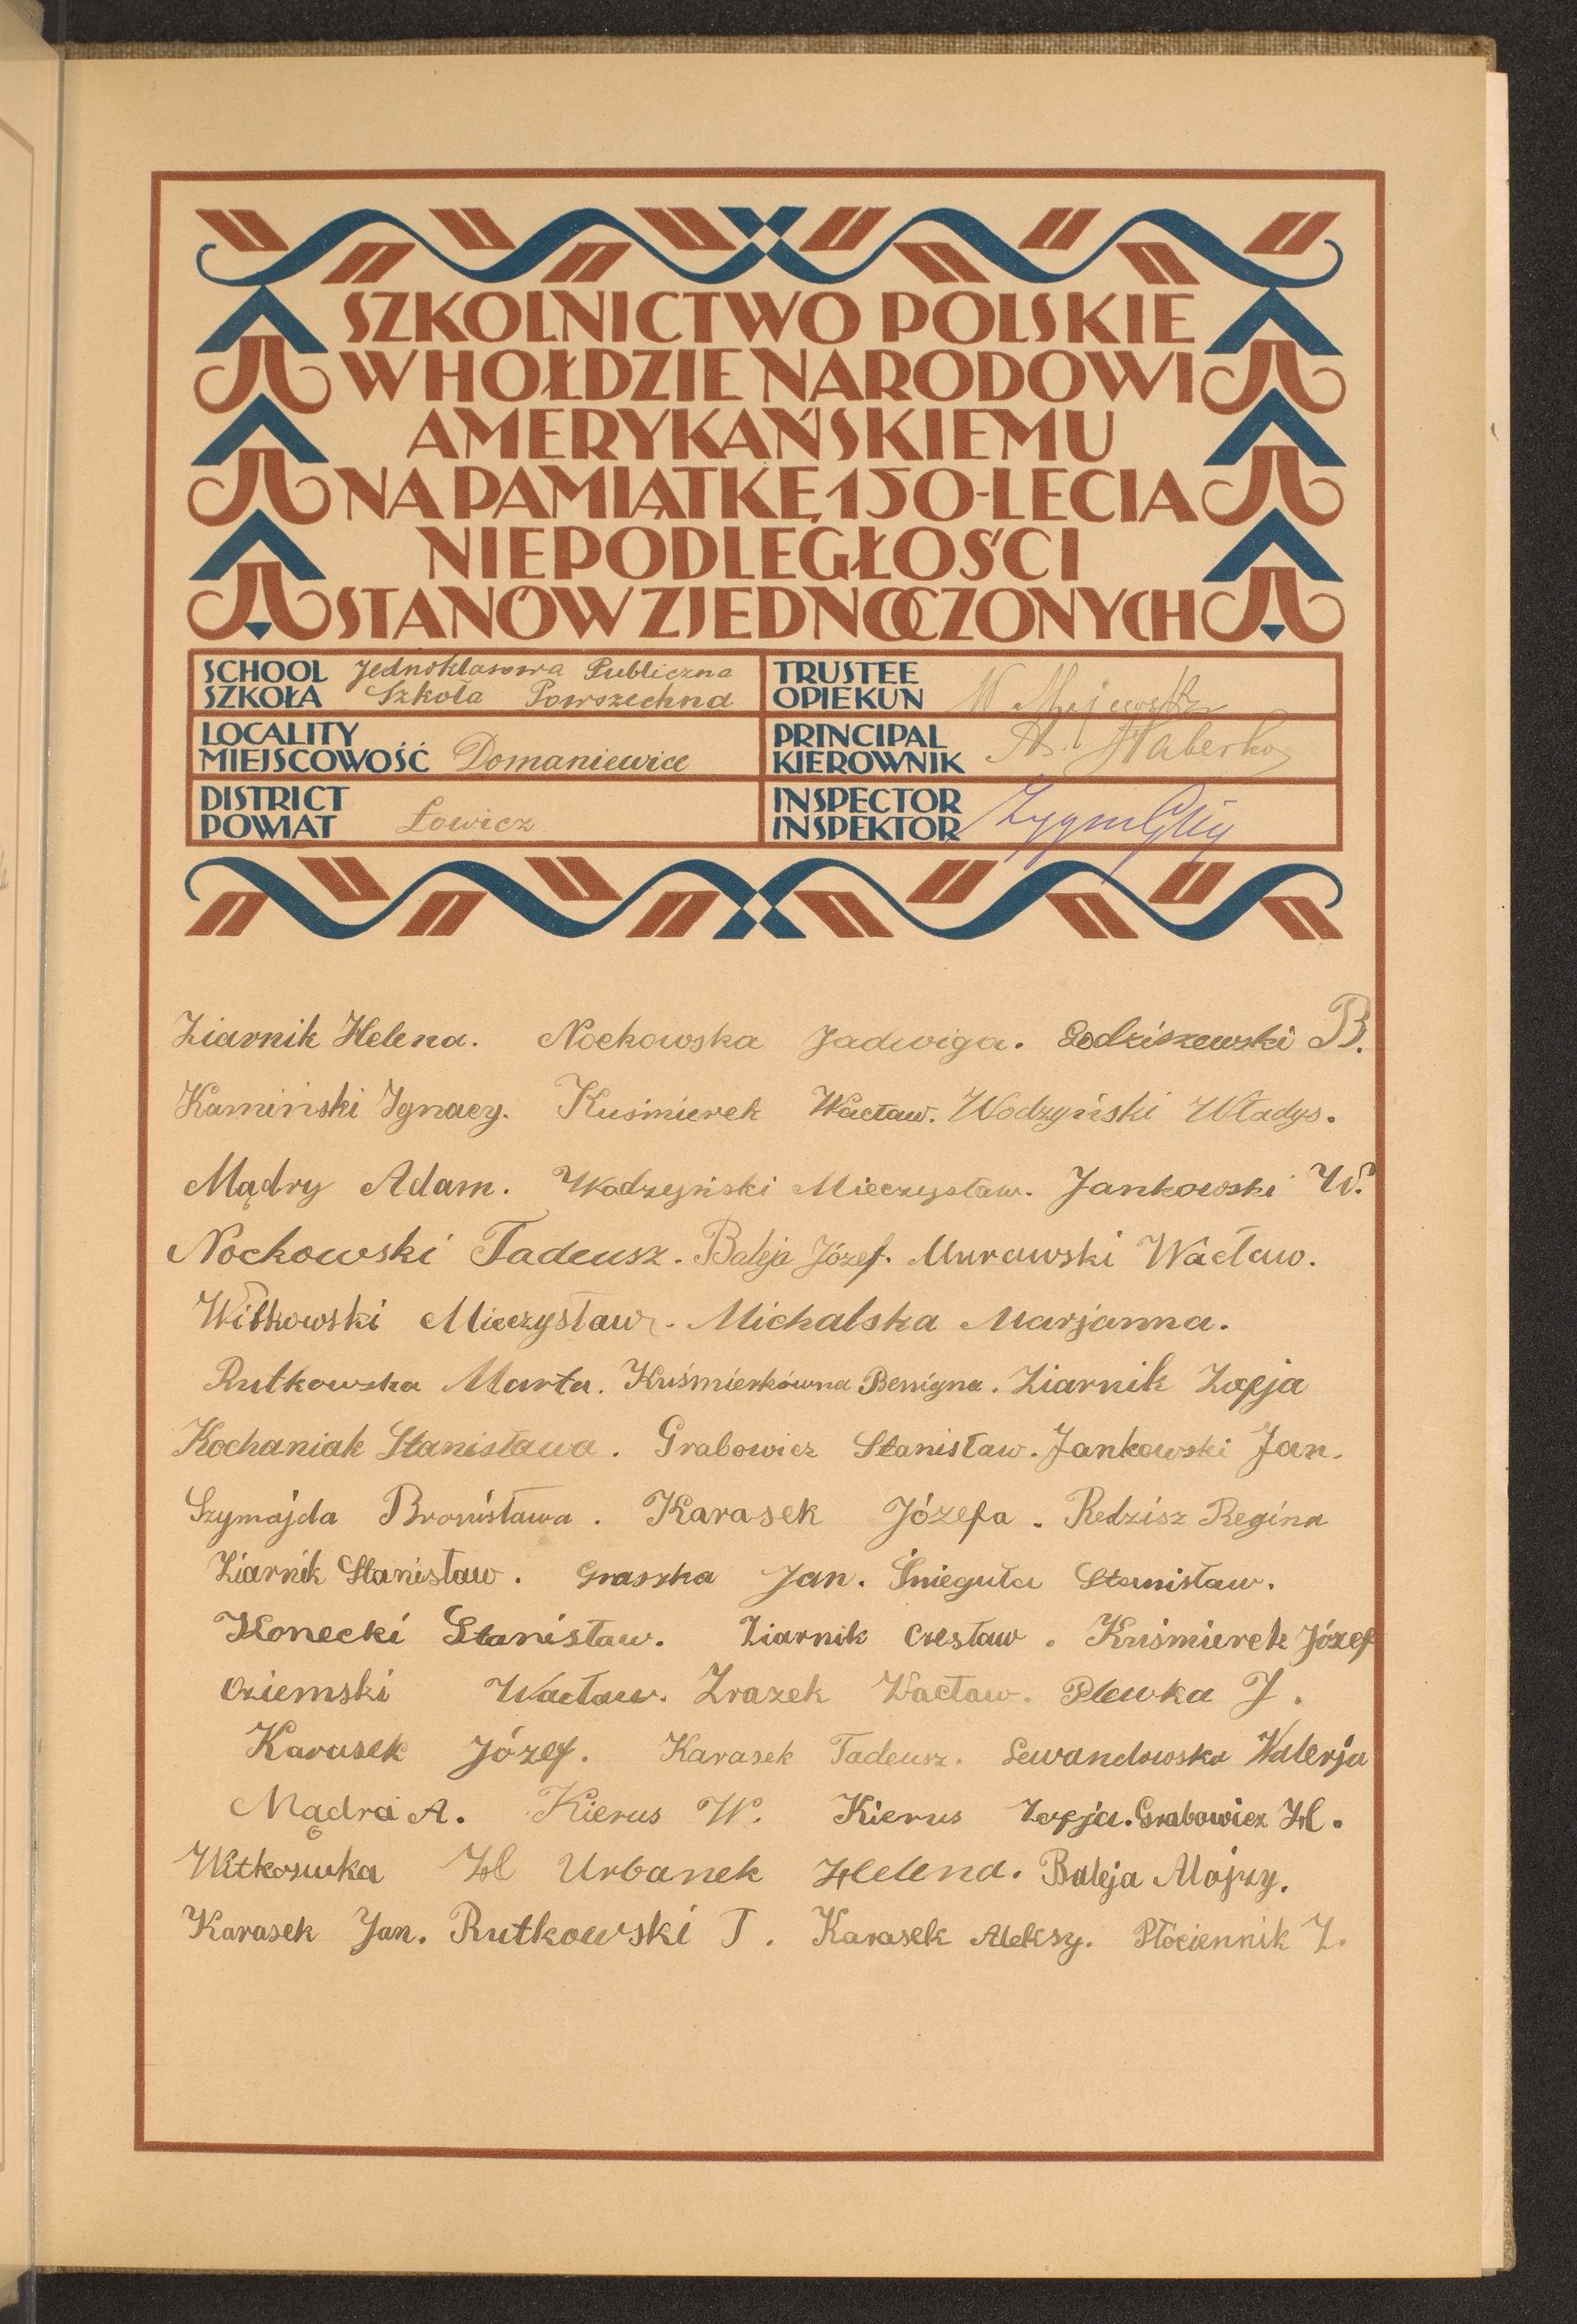 SZKOLNICTWO POLSKIE
W HOŁDZIE NARODOWI
AMERYKAŃSKIEMU
NA PAMIĄTKĘ 150-LECIA
NIEPODLEGŁOŚCI
STANÓW ZJEDNOCZONYCH
SCHOOL
SZKOŁA
Jednoklasowa Publiczna
Szkoła Powszechna
TRUSTEE
OPIEKUN
W Majewska
LOCALITY
MIEJSCOWOŚĆ
Domaniewice
PRINCIPAL
KIEROWNIK
DISTRICT
POWIAT
Łowicz
INSPECTOR
INSPEKTOR
Ziarnik Helena. Nockowska Jadwiga. Godziszewski B.
Kamiński Ignacy. Kuśmierek Wacław. Wodzyński Władys.
Mądry Adam. Wodzyński Mieczysław. Jankowski W.
Nockowski Tadeusz. Baleja Józef. Murawski Wacław.
Witkowski Mieczysław. Michalska Marjanna.
Rutkowska Marta. Kuśmierkówna Benigna. Ziarnik Zofja
Kochaniak Stanisława. Grabowicz Stanisław. Jankowski Jan.
Szymajda Bronisława. Karasek Józefa. Redzisz Regina
Ziarnik Stanisław. Graszka Jan. Śnieguła Stanisław.
Konecki Stanisław. Ziarnik Czesław. Kuśmierek Józef
Oziemski Wacław. Zrazek Wacław. Plewka J.
Karasek Józef. Karasek Tadeusz. Lewandowska Walerja
Mądra A. Kierus W. Kierus Zofja. Grabowicz H.
Witkoswka H Urbanek Helena. Baleja Alojzy.
Karasek Jan. Rutkowski T. Karasek Aleksy. Płóciennik Z.